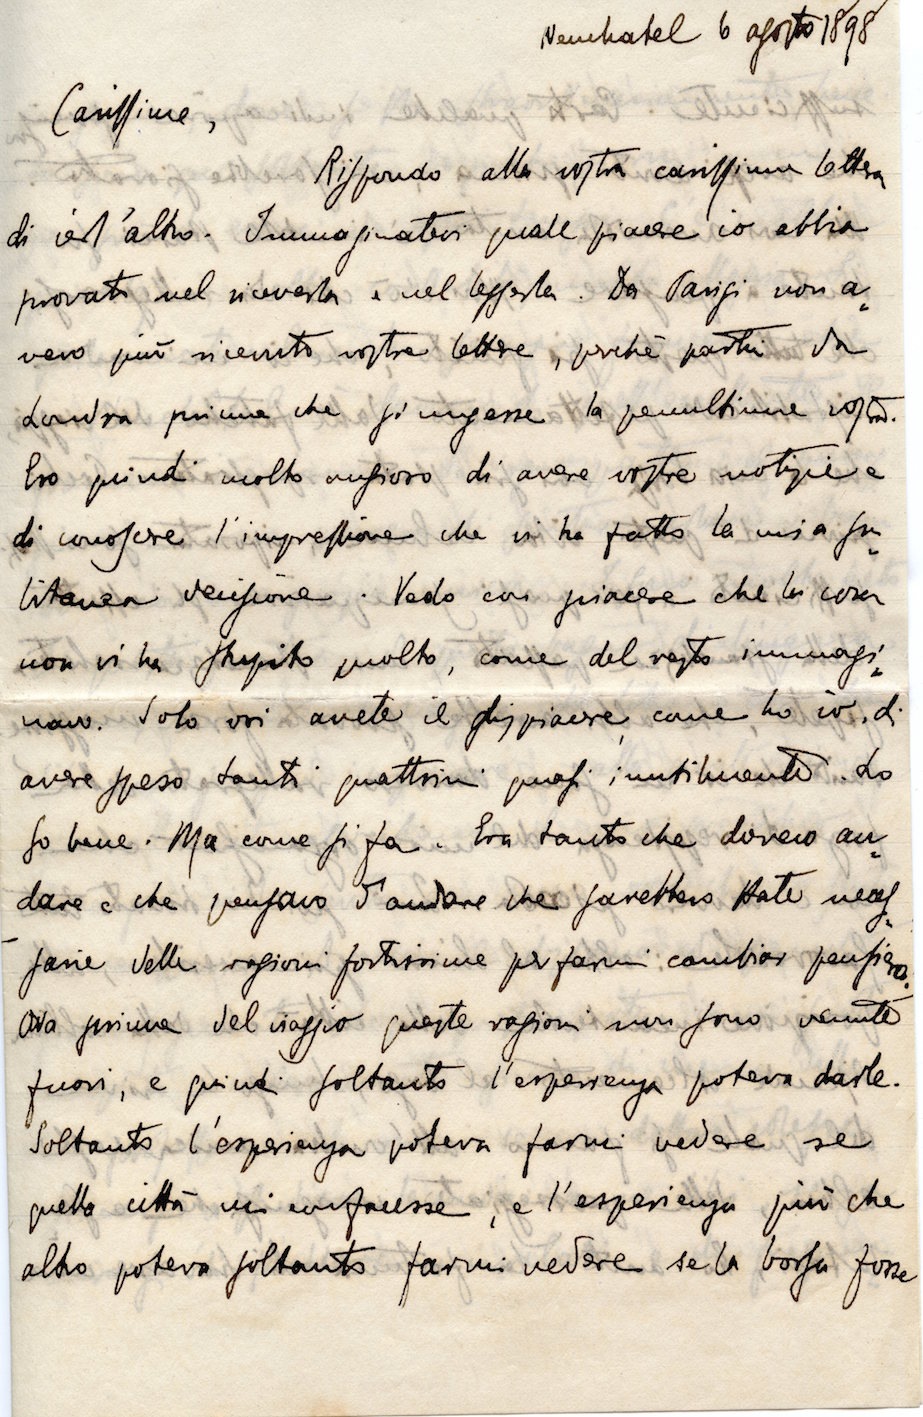 Neuchatel 6 agosto 1898
Carissime,
Rispondo alla vostra carissima lettera
di ierl'altro. Immaginatevi quale piacere io abbia
provato nel riceverla e nel leggerla. Da Parigi non a=
vevo più ricevuto vostre lettere, perchè partii da
Londra prima che giungesse la penultima vostra.
Ero quindi molto ansioso di avere vostre notizie e
di conoscere l'impressione che vi ha fatto la mia su=
bitanea decisione. Vedo con piacere che la cosa
non vi ha stupito molto, come del resto immagi=
navo. Solo voi avete il dispiacere, come ho io, di
avere speso tanti quattrini quasi inutilmente. Lo
so bene. Ma come si fa. Era tanto che dovevo an=
dare e che pensavo d'andare che sarebbero state neces=
sarie delle ragioni fortissime per farmi cambiar pensiero.
Ora prima del viaggio queste ragioni non sono venute
fuori, e quindi soltanto l'esperienza poteva darle.
Soltanto l'esperienza poteva farmi vedere se
quella città mi confacesse, e l'esperienza più che
altro poteva soltanto farmi vedere se la borsa fosse